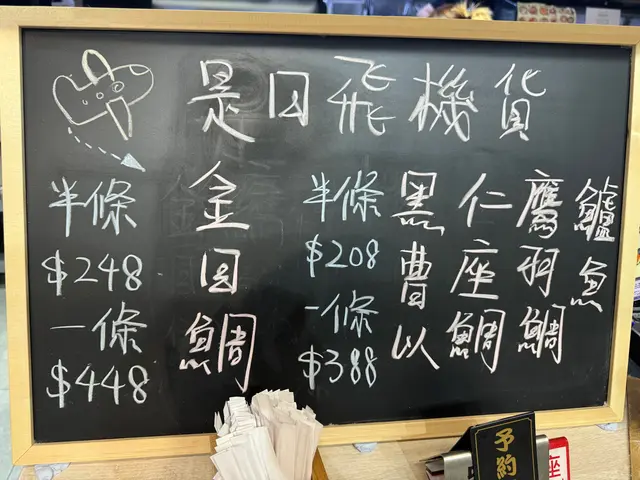 是日飛機貨
半條
$248
一條
$448
金目鯛
半條
$208
一條
$388
黑曹以
仁座鯛
鷹羽鯛
鱸魚
予約
座